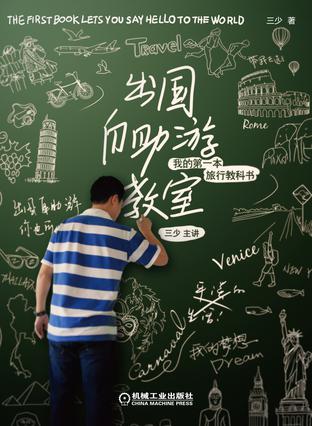 THE FIRST BOOK LETS YOU SAY HELLO TO THE WORLD
三少 著
Travel
出国
自助游
教室
我的第一本
旅行教科书
三少 主讲
Rome
出国自助游
你也可
THAILAND
Venice
NEW
平淡的
生活
Carnaval
我的梦想
Dream
机械工业出版社
CHINA MACHINE PRESS